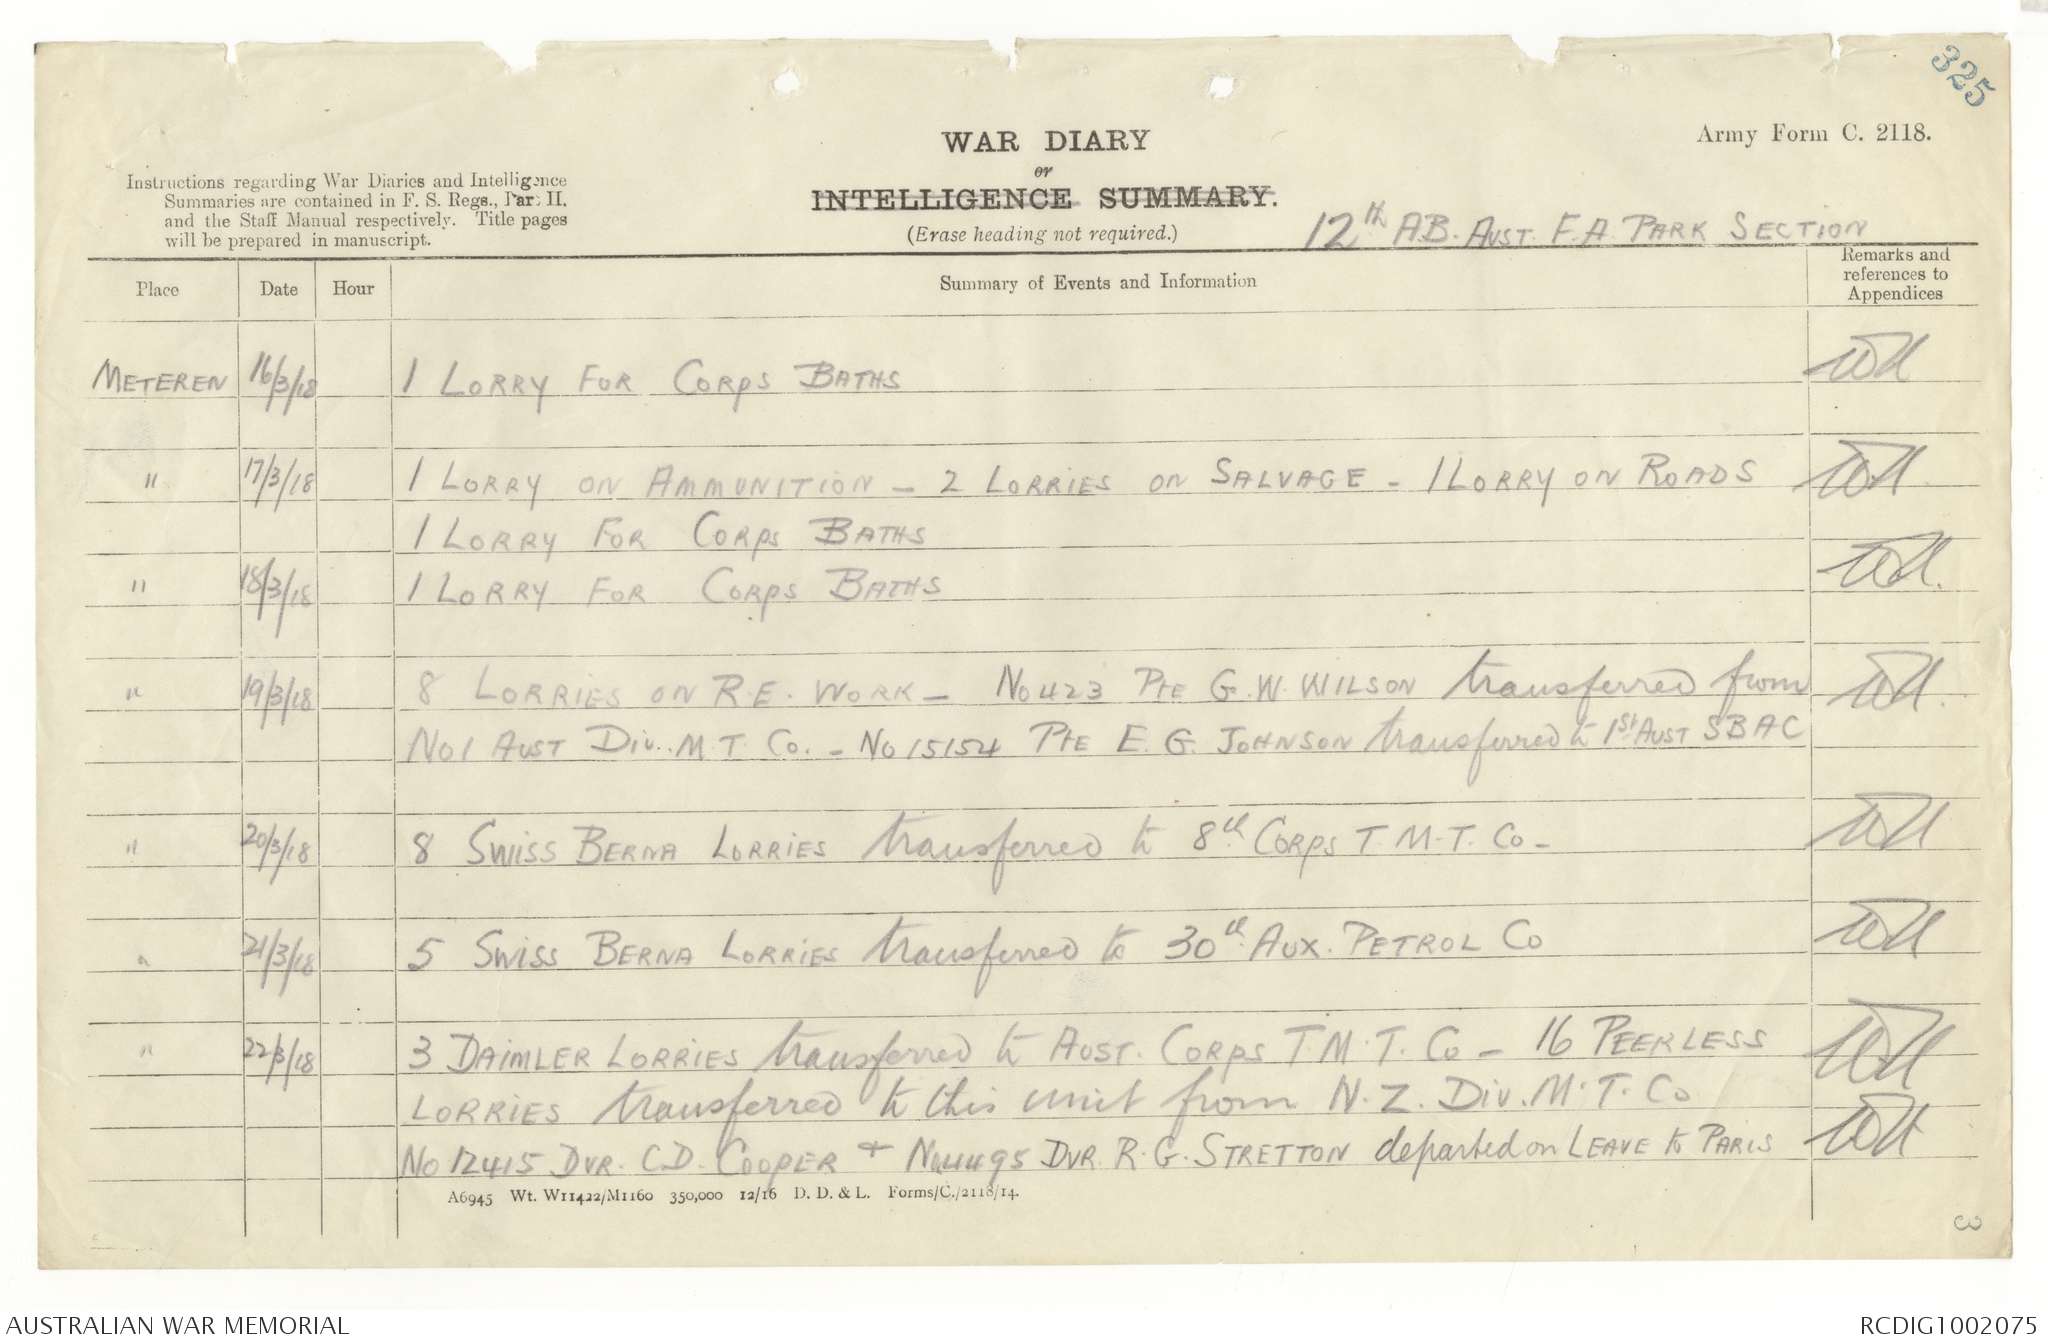 325
Army Form C. 2118.
WAR DIARY
or
INTELLIGENCE SUMMARY.
(Erase heading not required.)
Instructions regarding War Diaries and Intelligence
Summaries are contained in F. S. Regs., Part II.
and the Staff Manual respectively. Title pages
will be prepared in manuscript.
12th A.B. AUST. F.A. PARK SECTION
Place Date Hour Summary of Events and Information Remarks and references to Appendices
METEREN 16/3/18 1 LORRY FOR CORPS BATHS
" 17/3/18 1 LORRY ON AMMUNITION - 2 LORRIES ON SALVAGE - 1 LORRY ON ROADS
1 LORRY FOR CORPS BATHS
" 18/3/18 1 LORRY FOR CORPS BATHS
" 19/3/18 8 LORRIES ON R.E. WORK - No 423 Pte G.W. WILSON transferred from
No 1 AUST DIV. M.T. Co. - No 15154 Pte E.G. JOHNSON transferred to 1st AUST SBAC
" 20/3/18 8 SWISS BERNA LORRIES transferred to 8th CORPS T.M.T. Co -
" 21/3/18 5 SWISS BERNA LORRIES transferred to 30th AUX. PETROL Co
" 22/3/18 3 DAIMLER LORRIES transferred to AUST. CORPS T.M.T. Co - 16 PEERLESS
LORRIES transferred to this unit from N.Z. DIV. M.T. Co
No 12415 DVR. C.D. COOPER + No 4495 DVR. R.G. STRETTON departed on LEAVE to PARIS
A6945 Wt. W11422/M1160 350,000 12/16 D. D. & L. Forms/C./2118/14.
3
AUSTRALIAN WAR MEMORIAL
RCDIG1002075